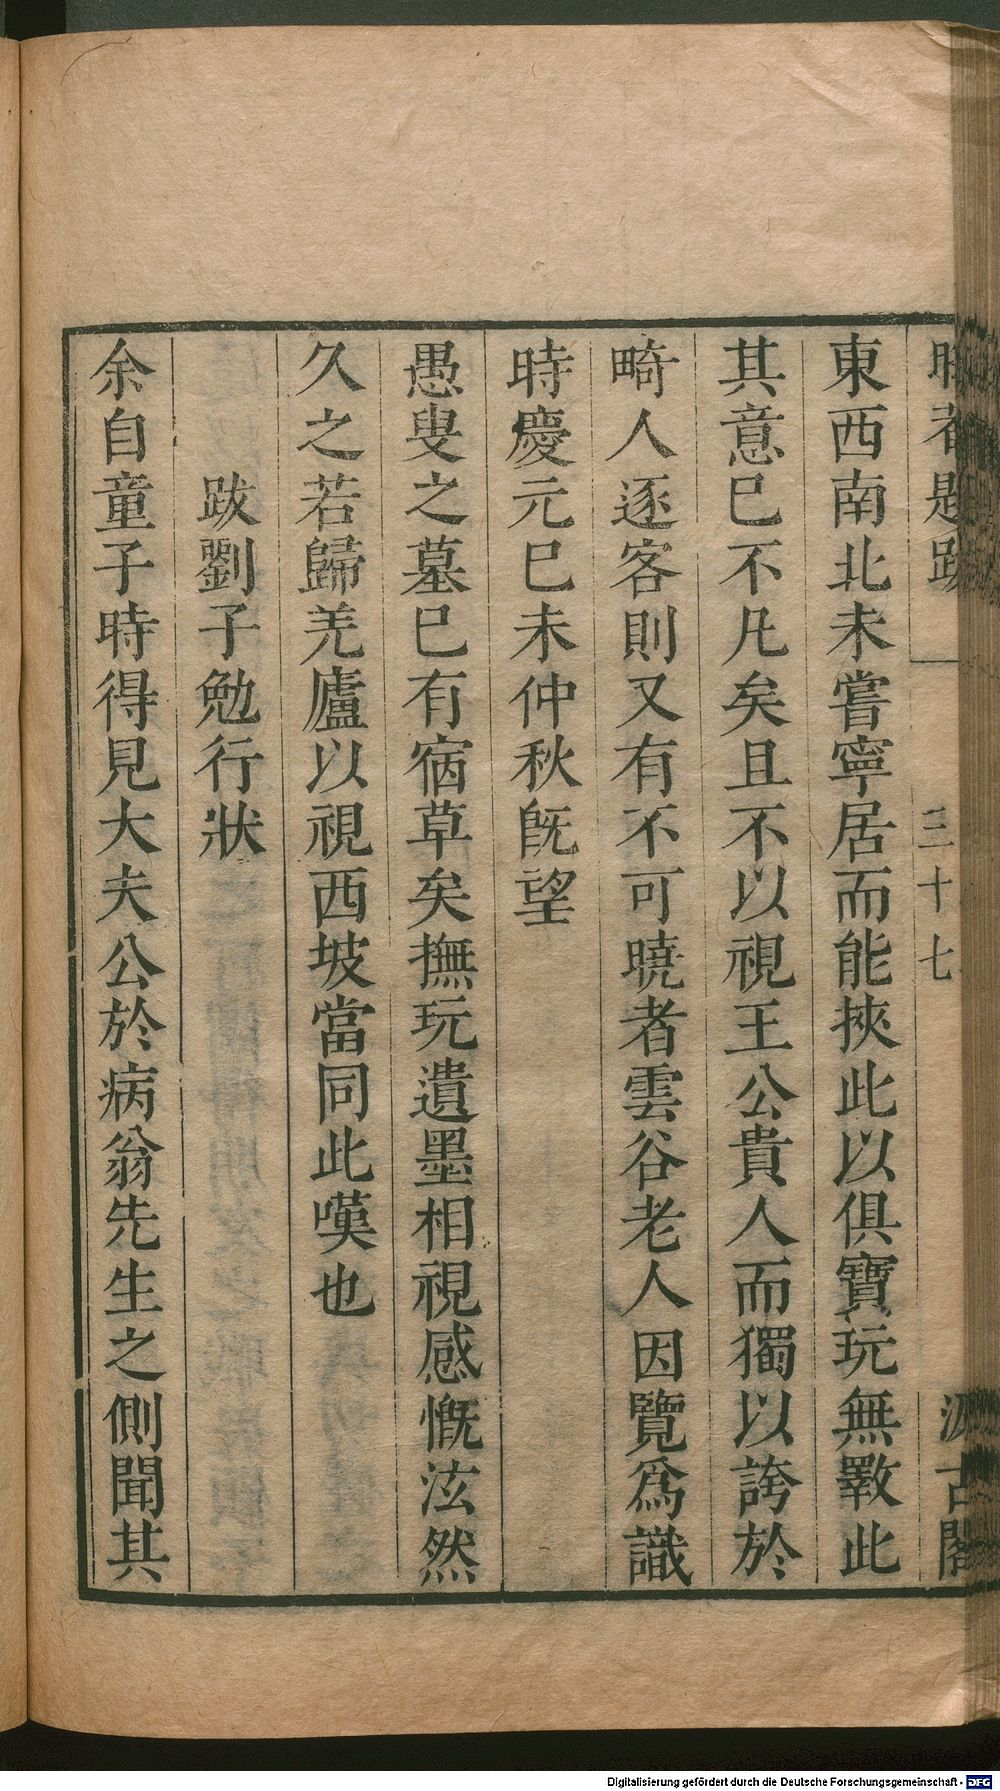 晦菴題跋
三十七
汲古閣
東西南北未嘗寧居而能挾此以俱寶玩無斁此
其意已不凡矣且不以視王公貴人而獨以誇於
畸人逐客則又有不可曉者雲谷老人因覽爲識
時慶元巳未仲秋旣望
愚叟之墓巳有宿草矣撫玩遺墨相視感慨泫然
久之若歸羌廬以視西坡當同此嘆也
跋劉子勉行狀
余自童子時得見大夫公於病翁先生之側聞其
Digitalisierung gefördert durch die Deutsche Forschungsgemeinschaft - DFG